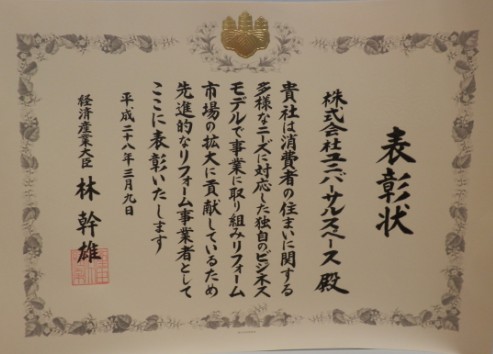 表彰状
株式会社ユニバーサルスペース 殿
貴社は消費者の住まいに関する
多様なニーズに対応した独自のビジネス
モデルで事業に取り組みリフォーム
市場の拡大に貢献しているため
先進的なリフォーム事業者として
ここに表彰いたします
平成二十八年三月九日
経済産業大臣 林 幹雄